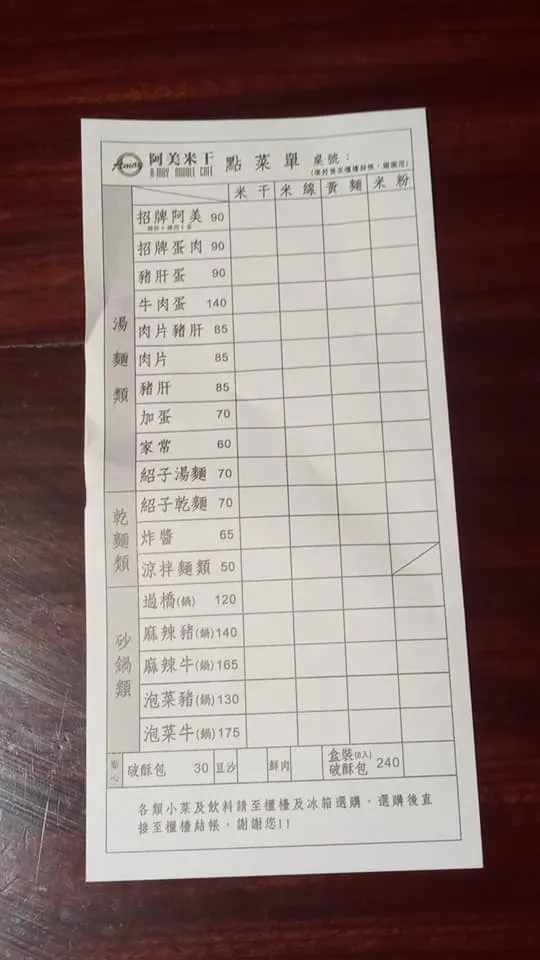 Amay 阿美米干 點菜單 桌號：
A-MAY NOODLE CAFÉ (填好後至櫃檯結帳，謝謝您)
米干 米線 黃麵 米粉
湯麵類
招牌阿美 90
招牌蛋肉 90
豬肝蛋 90
牛肉蛋 140
肉片豬肝 85
肉片 85
豬肝 85
加蛋 70
家常 60
紹子湯麵 70
乾麵類
紹子乾麵 70
炸醬 65
涼拌麵類 50
砂鍋類
過橋(鍋) 120
麻辣豬(鍋) 140
麻辣牛(鍋) 165
泡菜豬(鍋) 130
泡菜牛(鍋) 175
破酥包 30 豆沙 鮮肉 盒裝(8入) 破酥包 240
各類小菜及飲料請至櫃檯及冰箱選購，選購後直
接至櫃檯結帳，謝謝您!!